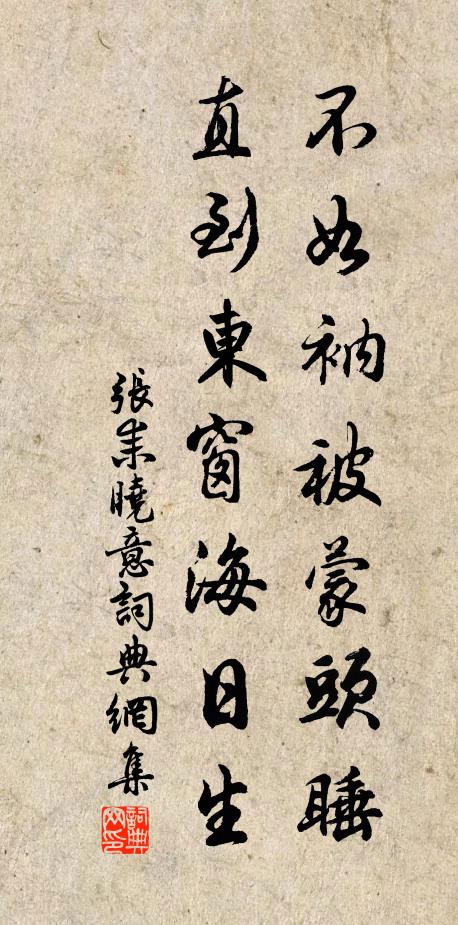 不如衲被蒙頭睡
直到東窗海日生
張耒曉意詞典網集
詞典网印